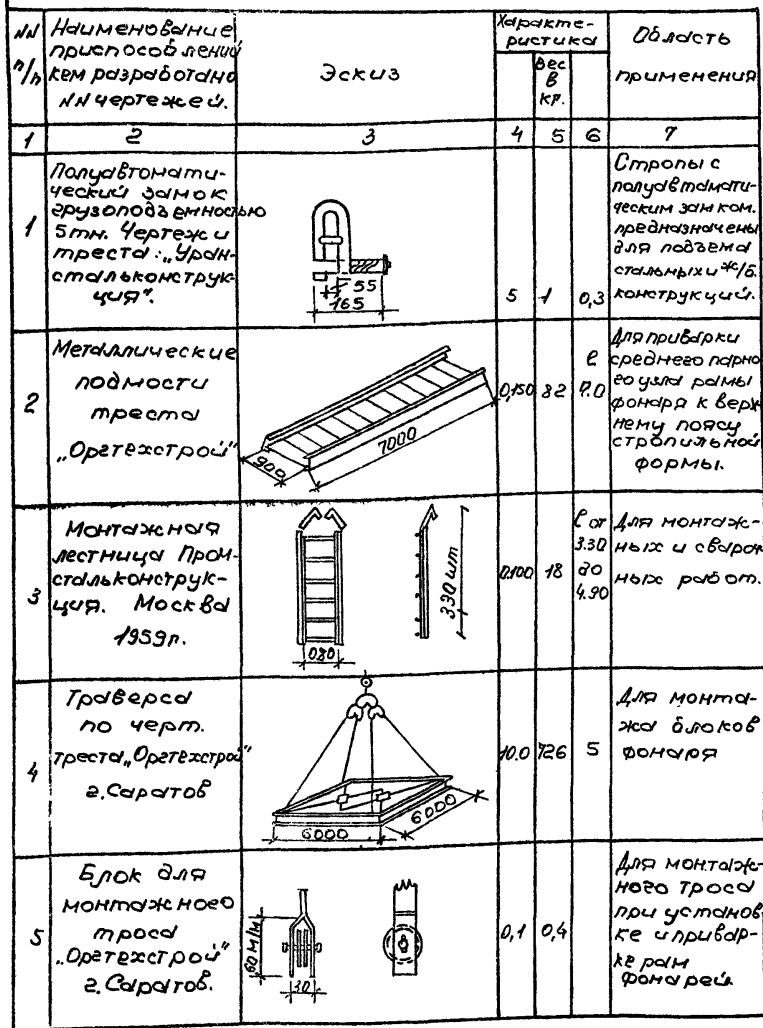 NN Наименование
п/п приспособлений
кем разработано
NN чертежей.
Эскиз
Характе-
ристика
Вес
в
кг.
Область
применения
1 2 3 4 5 6 7
1
Полуавтомати-
ческий замок
грузоподъемностью
5тн. Чертежи
треста: „Урал-
стальконструк-
ция".
55
165
5 1 0,3
Стропы с
полуавтомати-
ческим замком.
предназначены
для подъема
стальных и ж/б.
конструкций.
2
Металлические
подмости
треста
„Оргтехстрой"
900
7000
0,150 82
ℓ
7.0
Для приварки
среднего парно
го узла рамы
фонаря к верх
нему поясу
стропильной
формы.
3
Монтажная
лестница Пром-
стальконструк-
ция. Москва
1959г.
080
330 шт
0.100 18
ℓ от
3.30
до
4.90
Для монтаж-
ных и свароч
ных работ.
4
Траверса
по черт.
треста „Оргтехстрой"
г. Саратов
6000
6000
10.0 726 5
Для монта-
жа блоков
фонаря
5
Блок для
монтажного
троса
„Оргтехстрой"
г. Саратов.
60 м/м
30
0,1 0,4
Для монтаж-
ного троса
при установ
ке и привар-
ке рам
фонарей.